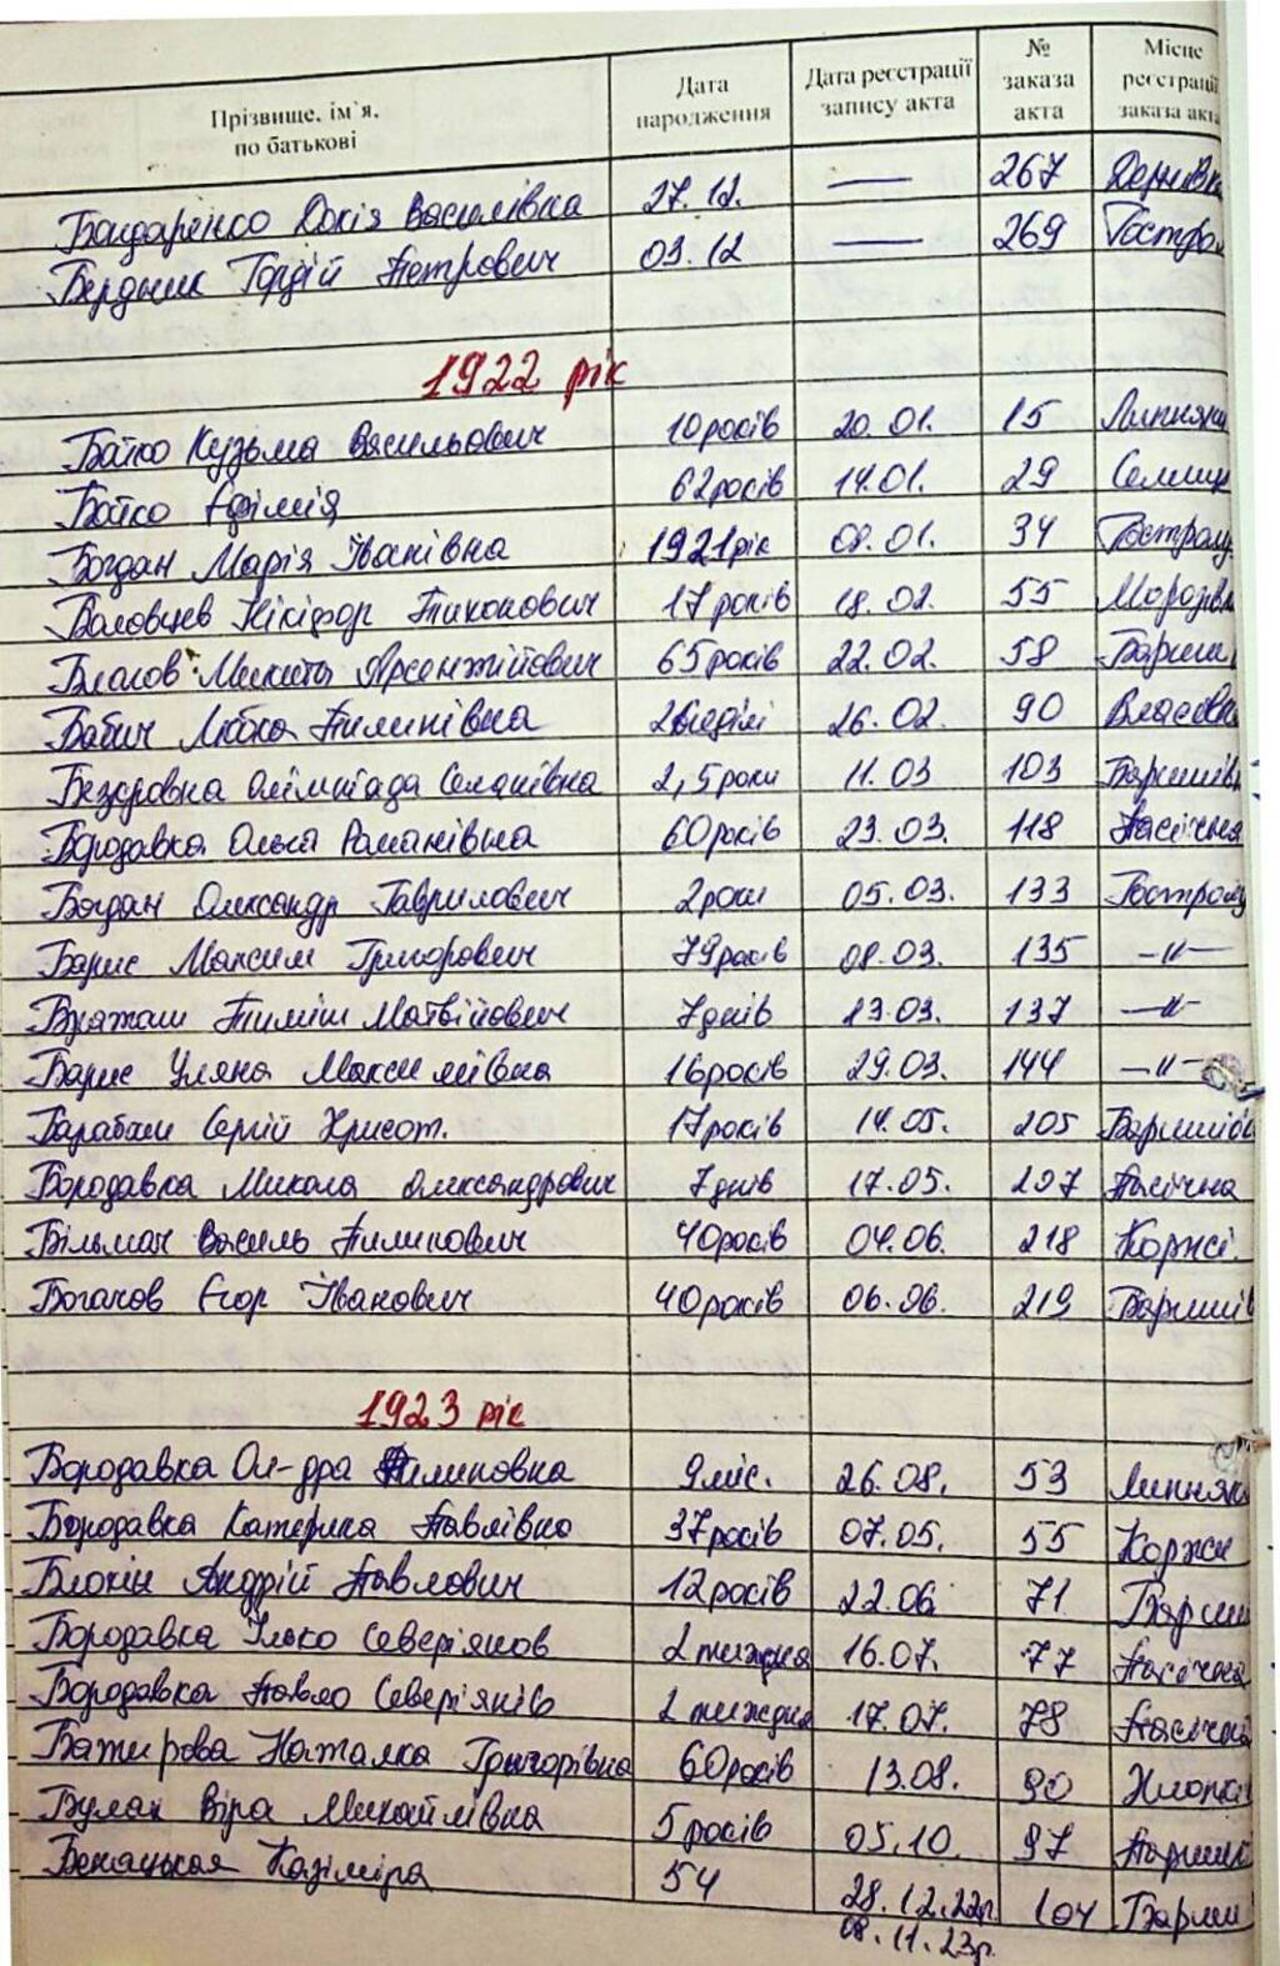 Прізвище, ім`я, по батькові Дата народження Дата реєстрації запису акта № заказа акта Місце реєстрації заказа акта
Бондаренко Докія Василівна 27.12. — 267 Дернівка
Бердник Гордій Петрович 03.12 — 269 Гостро
1922 рік
Бойко Кузьма Васильович 10 років 20.01. 15 Липняки
Бойко Єфімія 62 років 14.01. 29 Селищ
Богдан Марія Іванівна 1921 рік 08.01. 34 Гостролу
Воловцев Нікіфор Тихонович 17 років 18.02. 55 Морозівк
Благов Микита Арсентійович 65 років 22.02. 58 Бариш
Бабич Любка Пилипівна 2 неділі 26.02. 90 Власівка
Безкровна Олімпіада Степанівна 2,5 роки 11.03 103 Баришівк
Бородавка Ольга Романівна 60 років 23.03. 118 Пасічна
Богдан Олександр Гаврилович 2 роки 05.03. 133 Гостролу
Барис Максим Григорович 79 років 08.03. 135 —"—
Бражаш Тиміш Матвійович 7 днів 13.03. 137 —"—
Барис Уляна Максимівна 16 років 29.03. 144 —"—
Барабаш Сергій Христ. 17 років 14.05. 205 Баришів
Бородавка Микола Олександрович 7 днів 17.05. 207 Пасічна
Більмач Василь Пилипович 40 років 04.06. 218 Коржі.
Богачов Єгор Іванович 40 років 06.06. 219 Баришів
1923 рік
Бородавка Ол-дра Пилиповна 9 міс. 26.08. 53 Липняк
Бородавка Катерина Павлівна 37 років 07.05. 55 Коржи
Блохін Андрій Павлович 12 років 22.06. 71 Бариш
Бородавка Ілько Север'янов 2 тиждня 16.07. 77 Пасічна
Бородавка Павло Север'янів 2 тиждня 17.07. 78 Пасічна
Батирова Наталка Григорівна 60 років 13.08. 90 Хлопкі
Булах Віра Михайлівна 5 років 05.10. 97 Паришк
Бенацькая Казіміра 54 28.12.22р. 104 Бариш
08.11.23р.